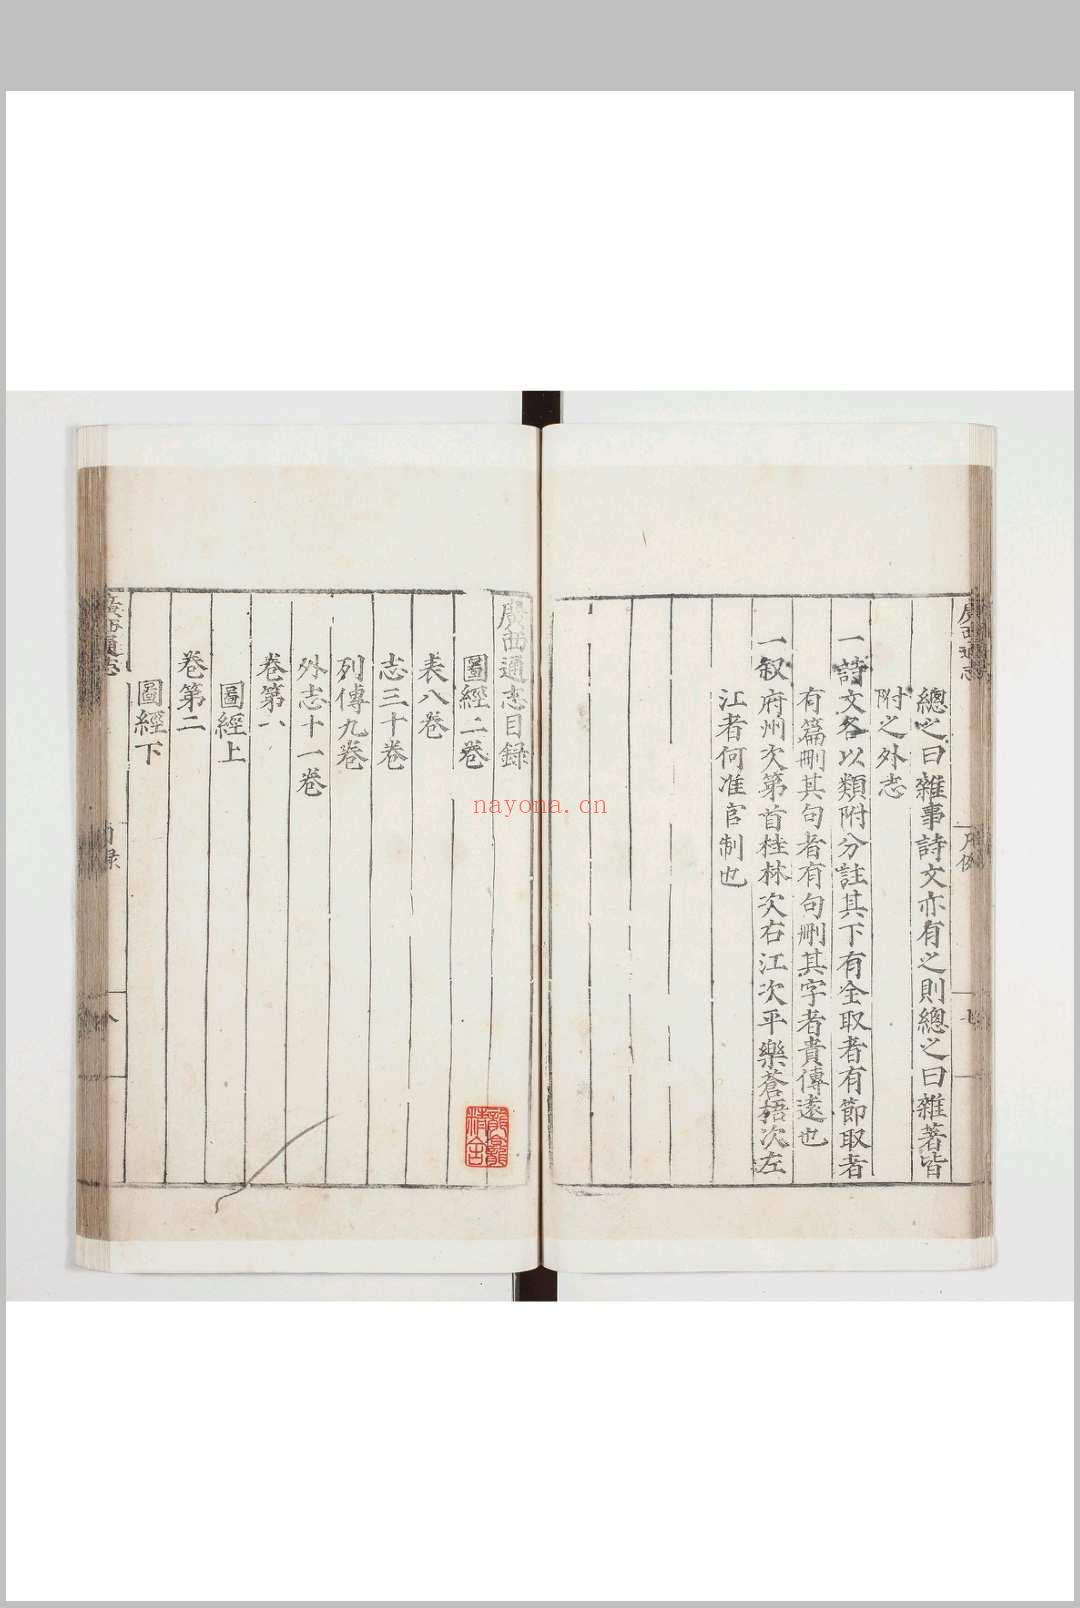 總之曰雜事詩文亦有之則總之曰雜著皆
附之外志
一詩文各以類附分註其下有全取者有節取者
有篇刪其句者有句刪其字者貴傳遠也
一叙府州次第首桂林次右江次平樂蒼梧次左
江者何准官制也
廣西通志目録
圖經二卷
表八卷
志三十卷
列傳九卷
外志十一卷
卷第一
圖經上
卷第二
圖經下
廣西通志
八
nayona.cn